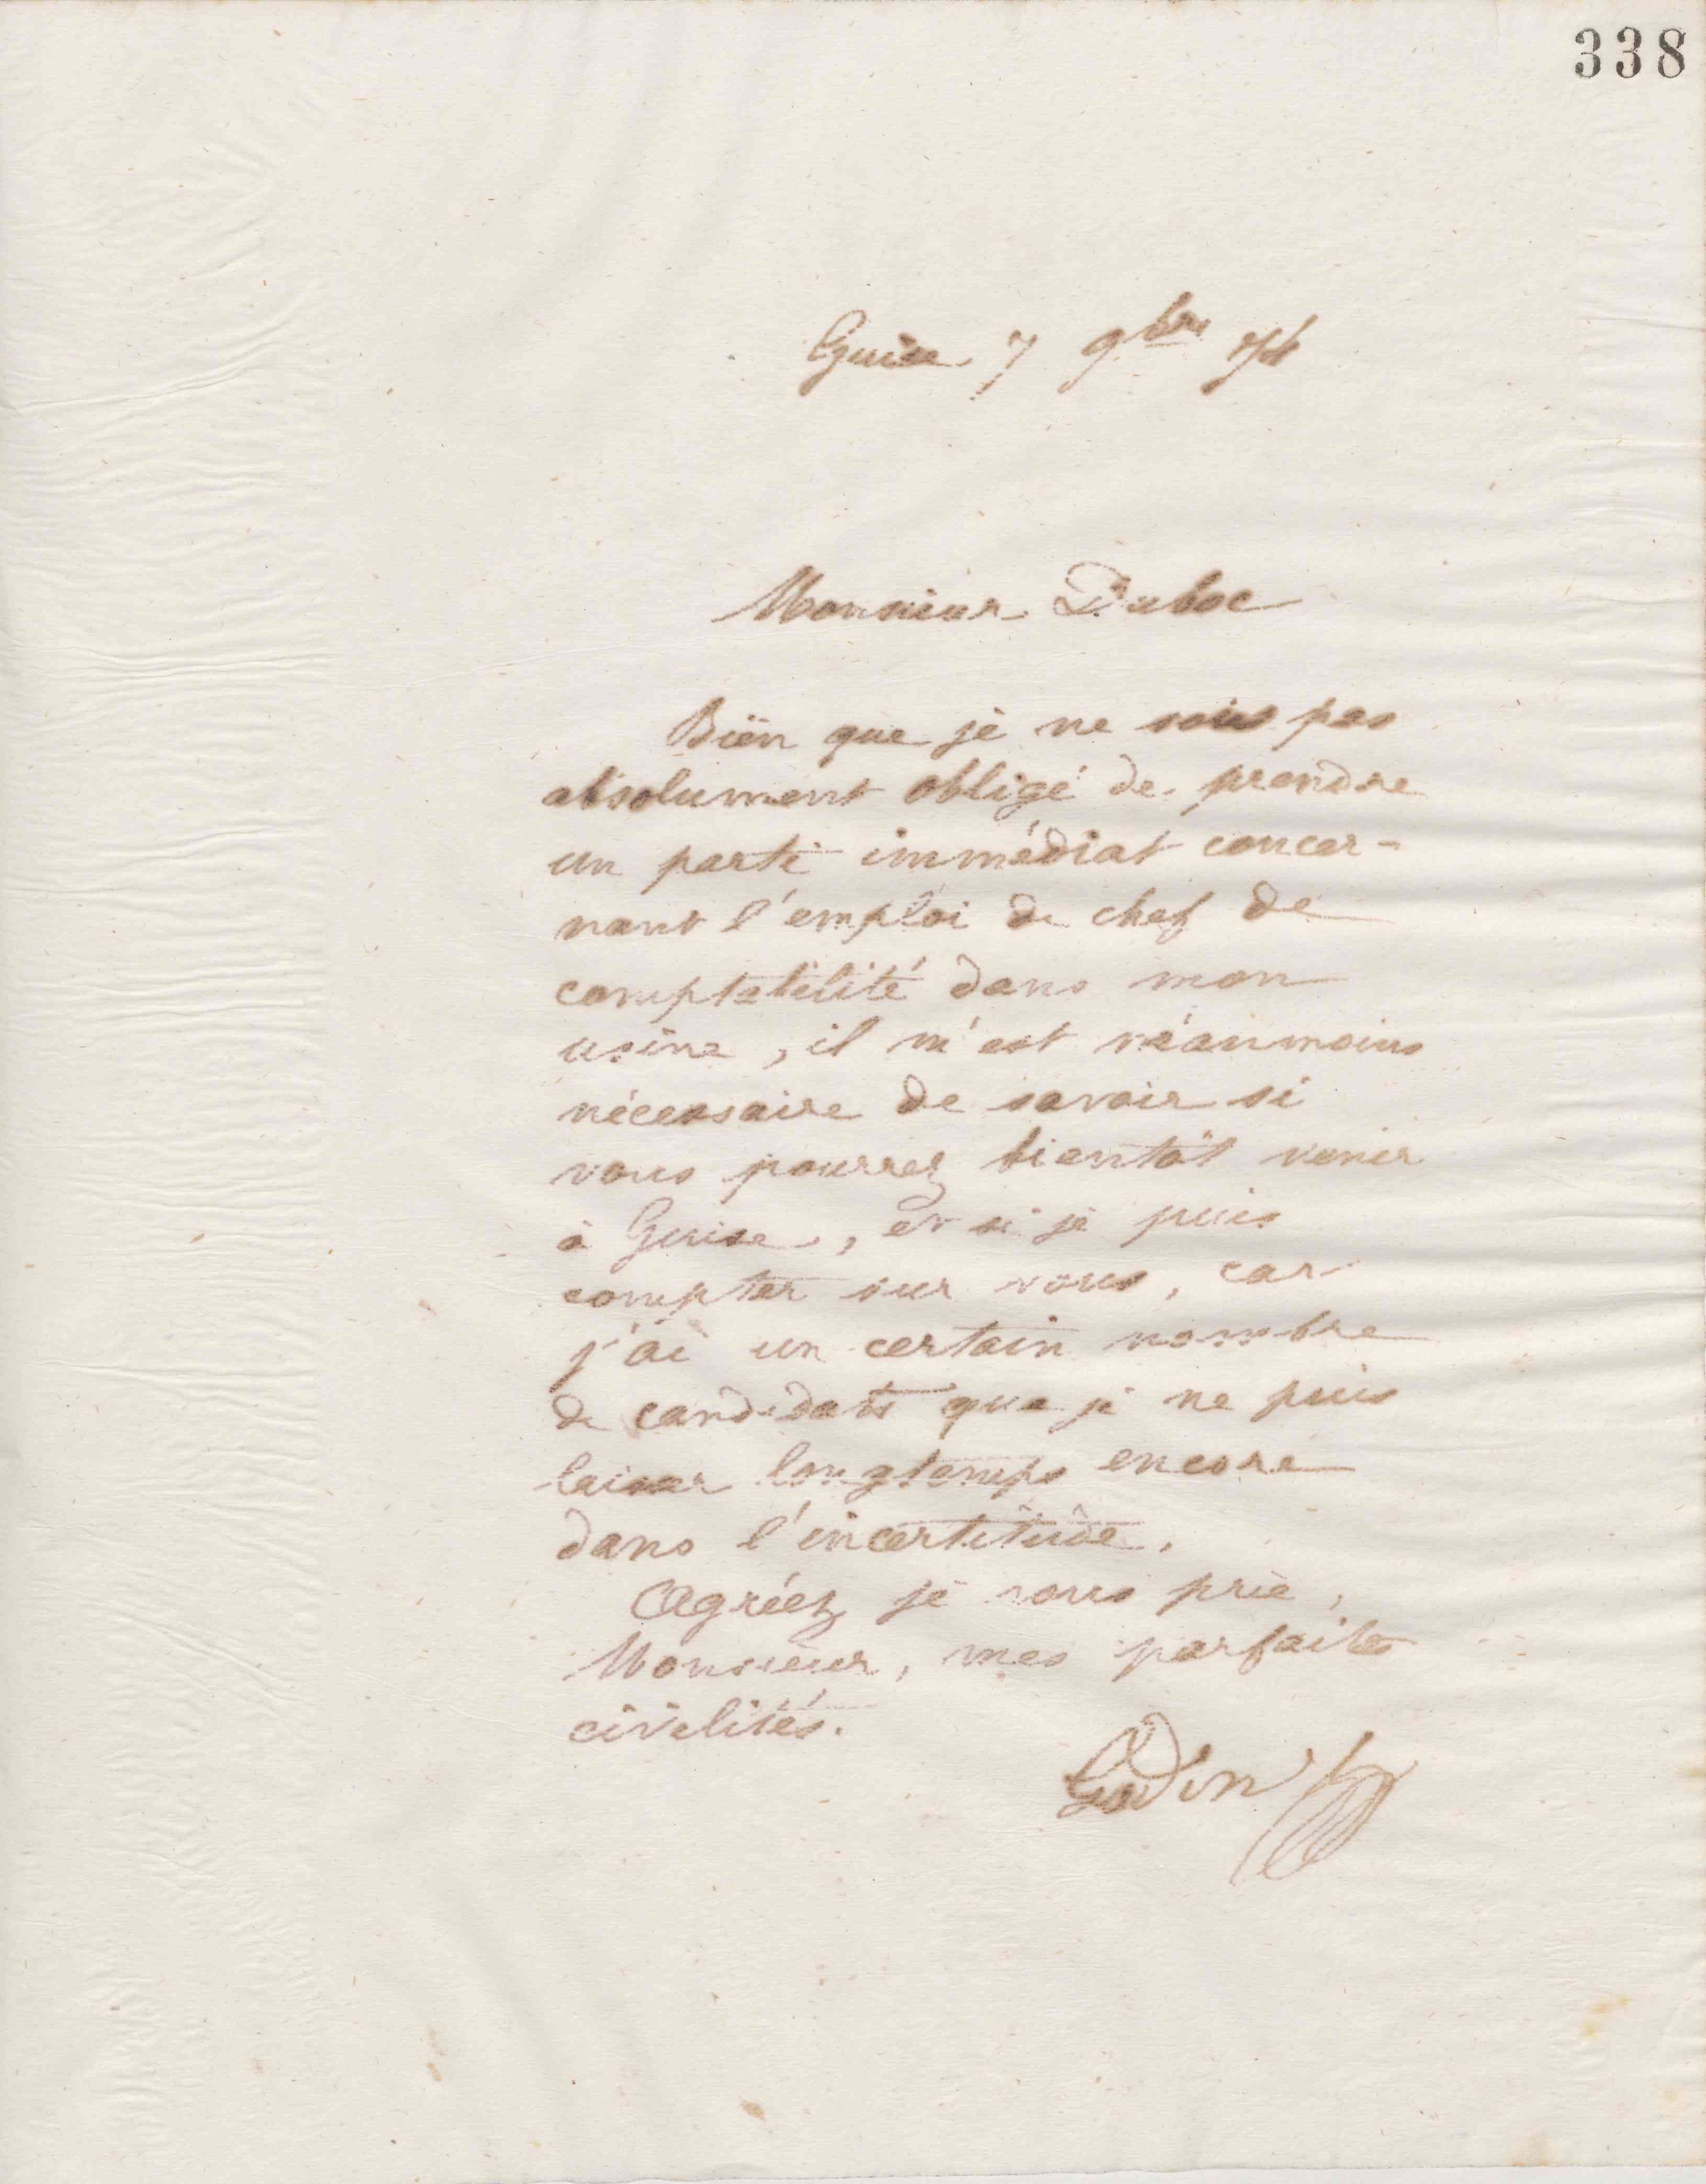 338
Guise 7 9bre 74
Monsieur Duboc
Bien que je ne sois pas
absolument obligé de prendre
un parti immédiat concer-
nant l'emploi de chef de
comptabilité dans mon
usine, il m'est néanmoins
nécessaire de savoir si
vous pourrez bientôt venir
à Guise, et si je puis
compter sur vous, car
j'ai un certain nombre
de candidats que je ne puis
laisser longtemps encore
dans l'incertitude.
Agréez je vous prie,
Monsieur, mes parfaites
civilités.
Godin